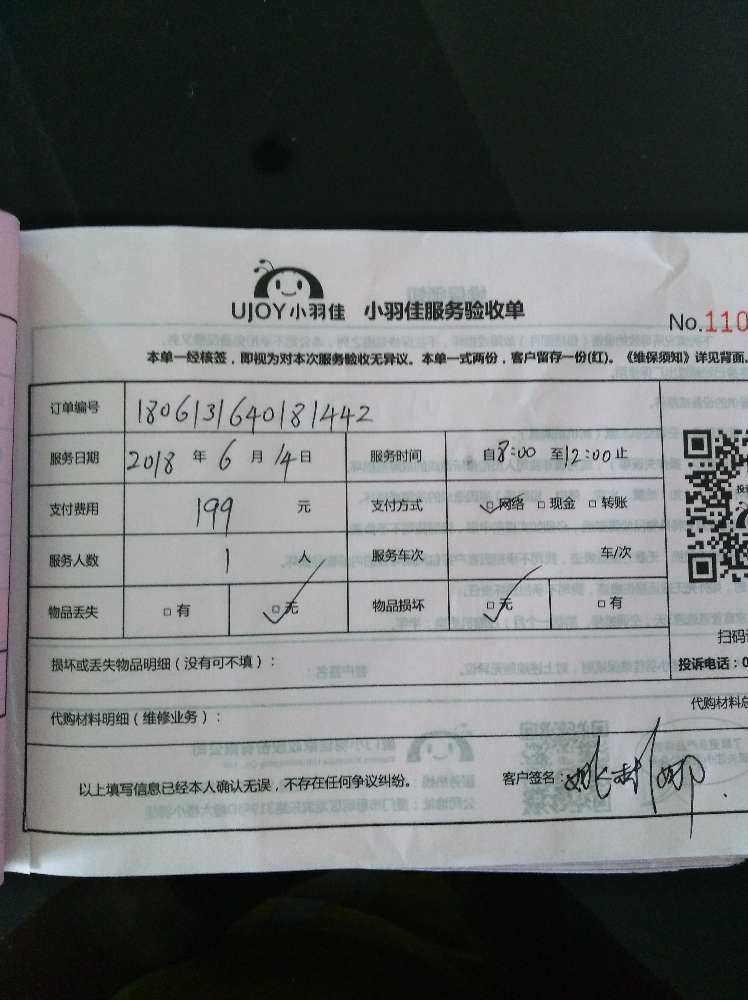 UJOY小羽佳 小羽佳服务验收单
No.110
本单一经核签，即视为对本次服务验收无异议。本单一式两份，客户留存一份(红)。《维保须知》详见背面。
订单编号 180613164018144​2
服务日期 2018 年 6 月 14 日 服务时间 自8:00 至12:00止
支付费用 199 元 支付方式 □网络 □现金 □转账
服务人数 1 人 服务车次 车/次
物品丢失 □有 □无 物品损坏 □无 □有
扫码
损坏或丢失物品明细（没有可不填）： 投诉电话：0
代购材料明细（维修业务）： 代购材料总
以上填写信息已经本人确认无误，不存在任何争议纠纷。 客户签名：